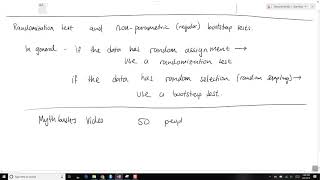 Randomization test and non-parametric (regular) bootstrap tests.
In general - if the data has random assignment →
use a randomization test
if the data has random selection (random sampling) →
use a bootstrap test.
Mythbusters Video 50 peopl